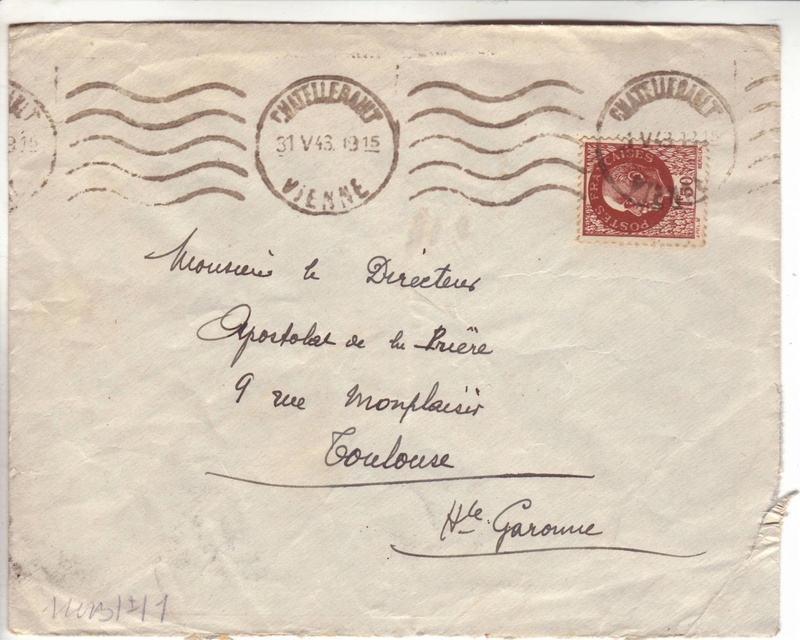 CHATELLERAULT
31 V 43. 19 15
VIENNE
CHATELLERAULT
POSTES FRANÇAISES
1F50
Monsieur le Directeur
Apostolat de la Prière
9 rue Monplaisir
Toulouse
Hte. Garonne